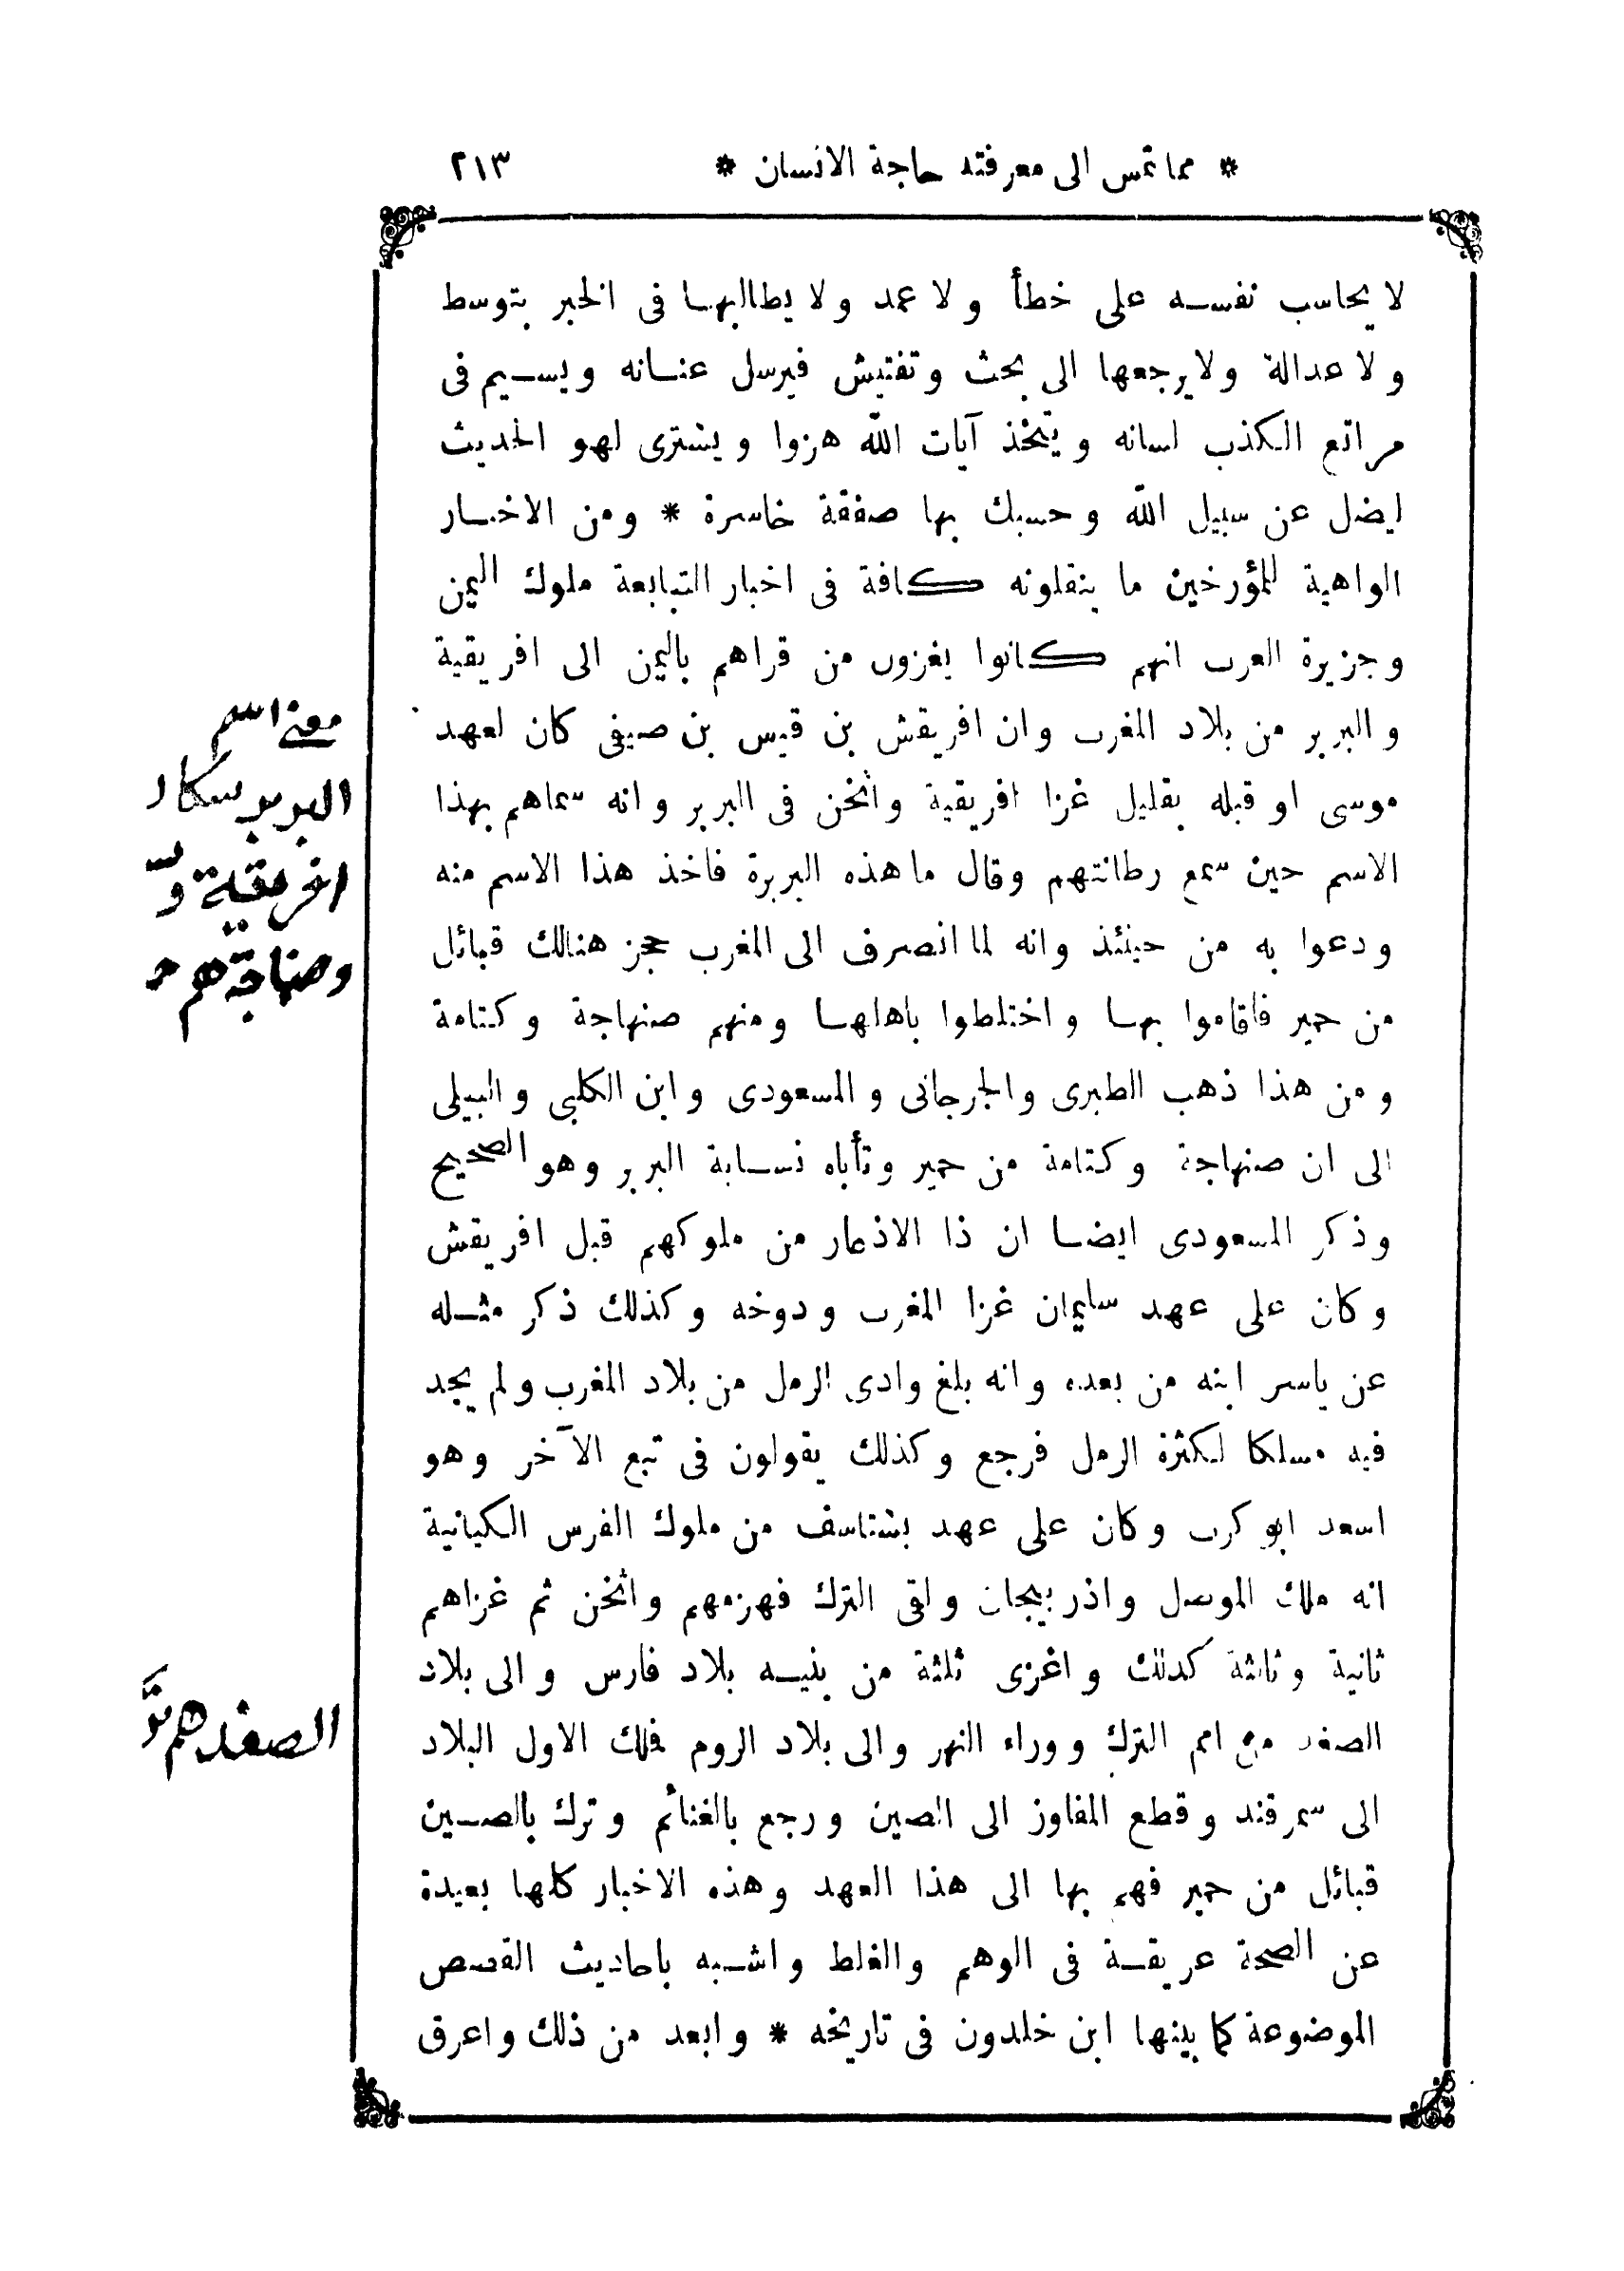 * مما تمس الى معرفته حاجة الانسان * ٢١٣
لا يحاسب نفسه على خطأ ولا عمد ولا يطالبها فى الخبر بتوسط
ولا عدالة ولا يرجعها الى بحث وتفتيش فيرسل عنانه ويسيم فى
مراتع الكذب لسانه ويتخذ آيات الله هزوا ويشترى لهو الحديث
ليضل عن سبيل الله وحسبك بها صفقة خاسرة * ومن الاخبار
الواهية للمؤرخين ما ينقلونه كافة فى اخبار التبابعة ملوك اليمن
وجزيرة العرب انهم كانوا يغزون من قراهم باليمن الى افريقية
والبربر من بلاد المغرب وان افريقش بن قيس بن صيفى كان لعهد
موسى او قبله بقليل غزا افريقية واثخن فى البربر وانه سماهم بهذا
الاسم حين سمع رطانتهم وقال ما هذه البربرة فاخذ هذا الاسم منه
ودعوا به من حينئذ وانه لما انصرف الى المغرب حجز هنالك قبائل
من حمير فاقاموا بها واختلطوا باهلها ومنهم صنهاجة وكتامة
ومن هذا ذهب الطبرى والجرجانى والمسعودى وابن الكلبى والبيلى
الى ان صنهاجة وكتامة من حمير وتأباه نسابة البربر وهو الصحيح
وذكر المسعودى ايضا ان ذا الاذعار من ملوكهم قبل افريقش
وكان على عهد سليمان غزا المغرب ودوخه وكذلك ذكر مثله
عن ياسر ابنه من بعده وانه بلغ وادى الرمل من بلاد المغرب ولم يجد
فيه مسلكا لكثرة الرمل فرجع وكذلك يقولون فى تبع الآخر وهو
اسعد ابو كرب وكان على عهد بشتاسف من ملوك الفرس الكيانية
انه ملك الموصل واذربيجان ولقى الترك فهزمهم واثخن ثم غزاهم
ثانية وثالثة كذلك واغزى ثلثة من بنيه بلاد فارس والى بلاد
الصغد من امم الترك ووراء النهر والى بلاد الروم فملك الاول البلاد
الى سمرقند وقطع المفاوز الى الصين ورجع بالغنائم وترك بالصين
قبائل من حمير فهم بها الى هذا العهد وهذه الاخبار كلها بعيدة
عن الصحة عريقة فى الوهم والغلط واشبه باحاديث القصص
الموضوعة كما بينها ابن خلدون فى تاريخه * وابعد من ذلك واعرق
معنى اسم
البربر
افريقية
وصنهاجة هم
الصغد هم